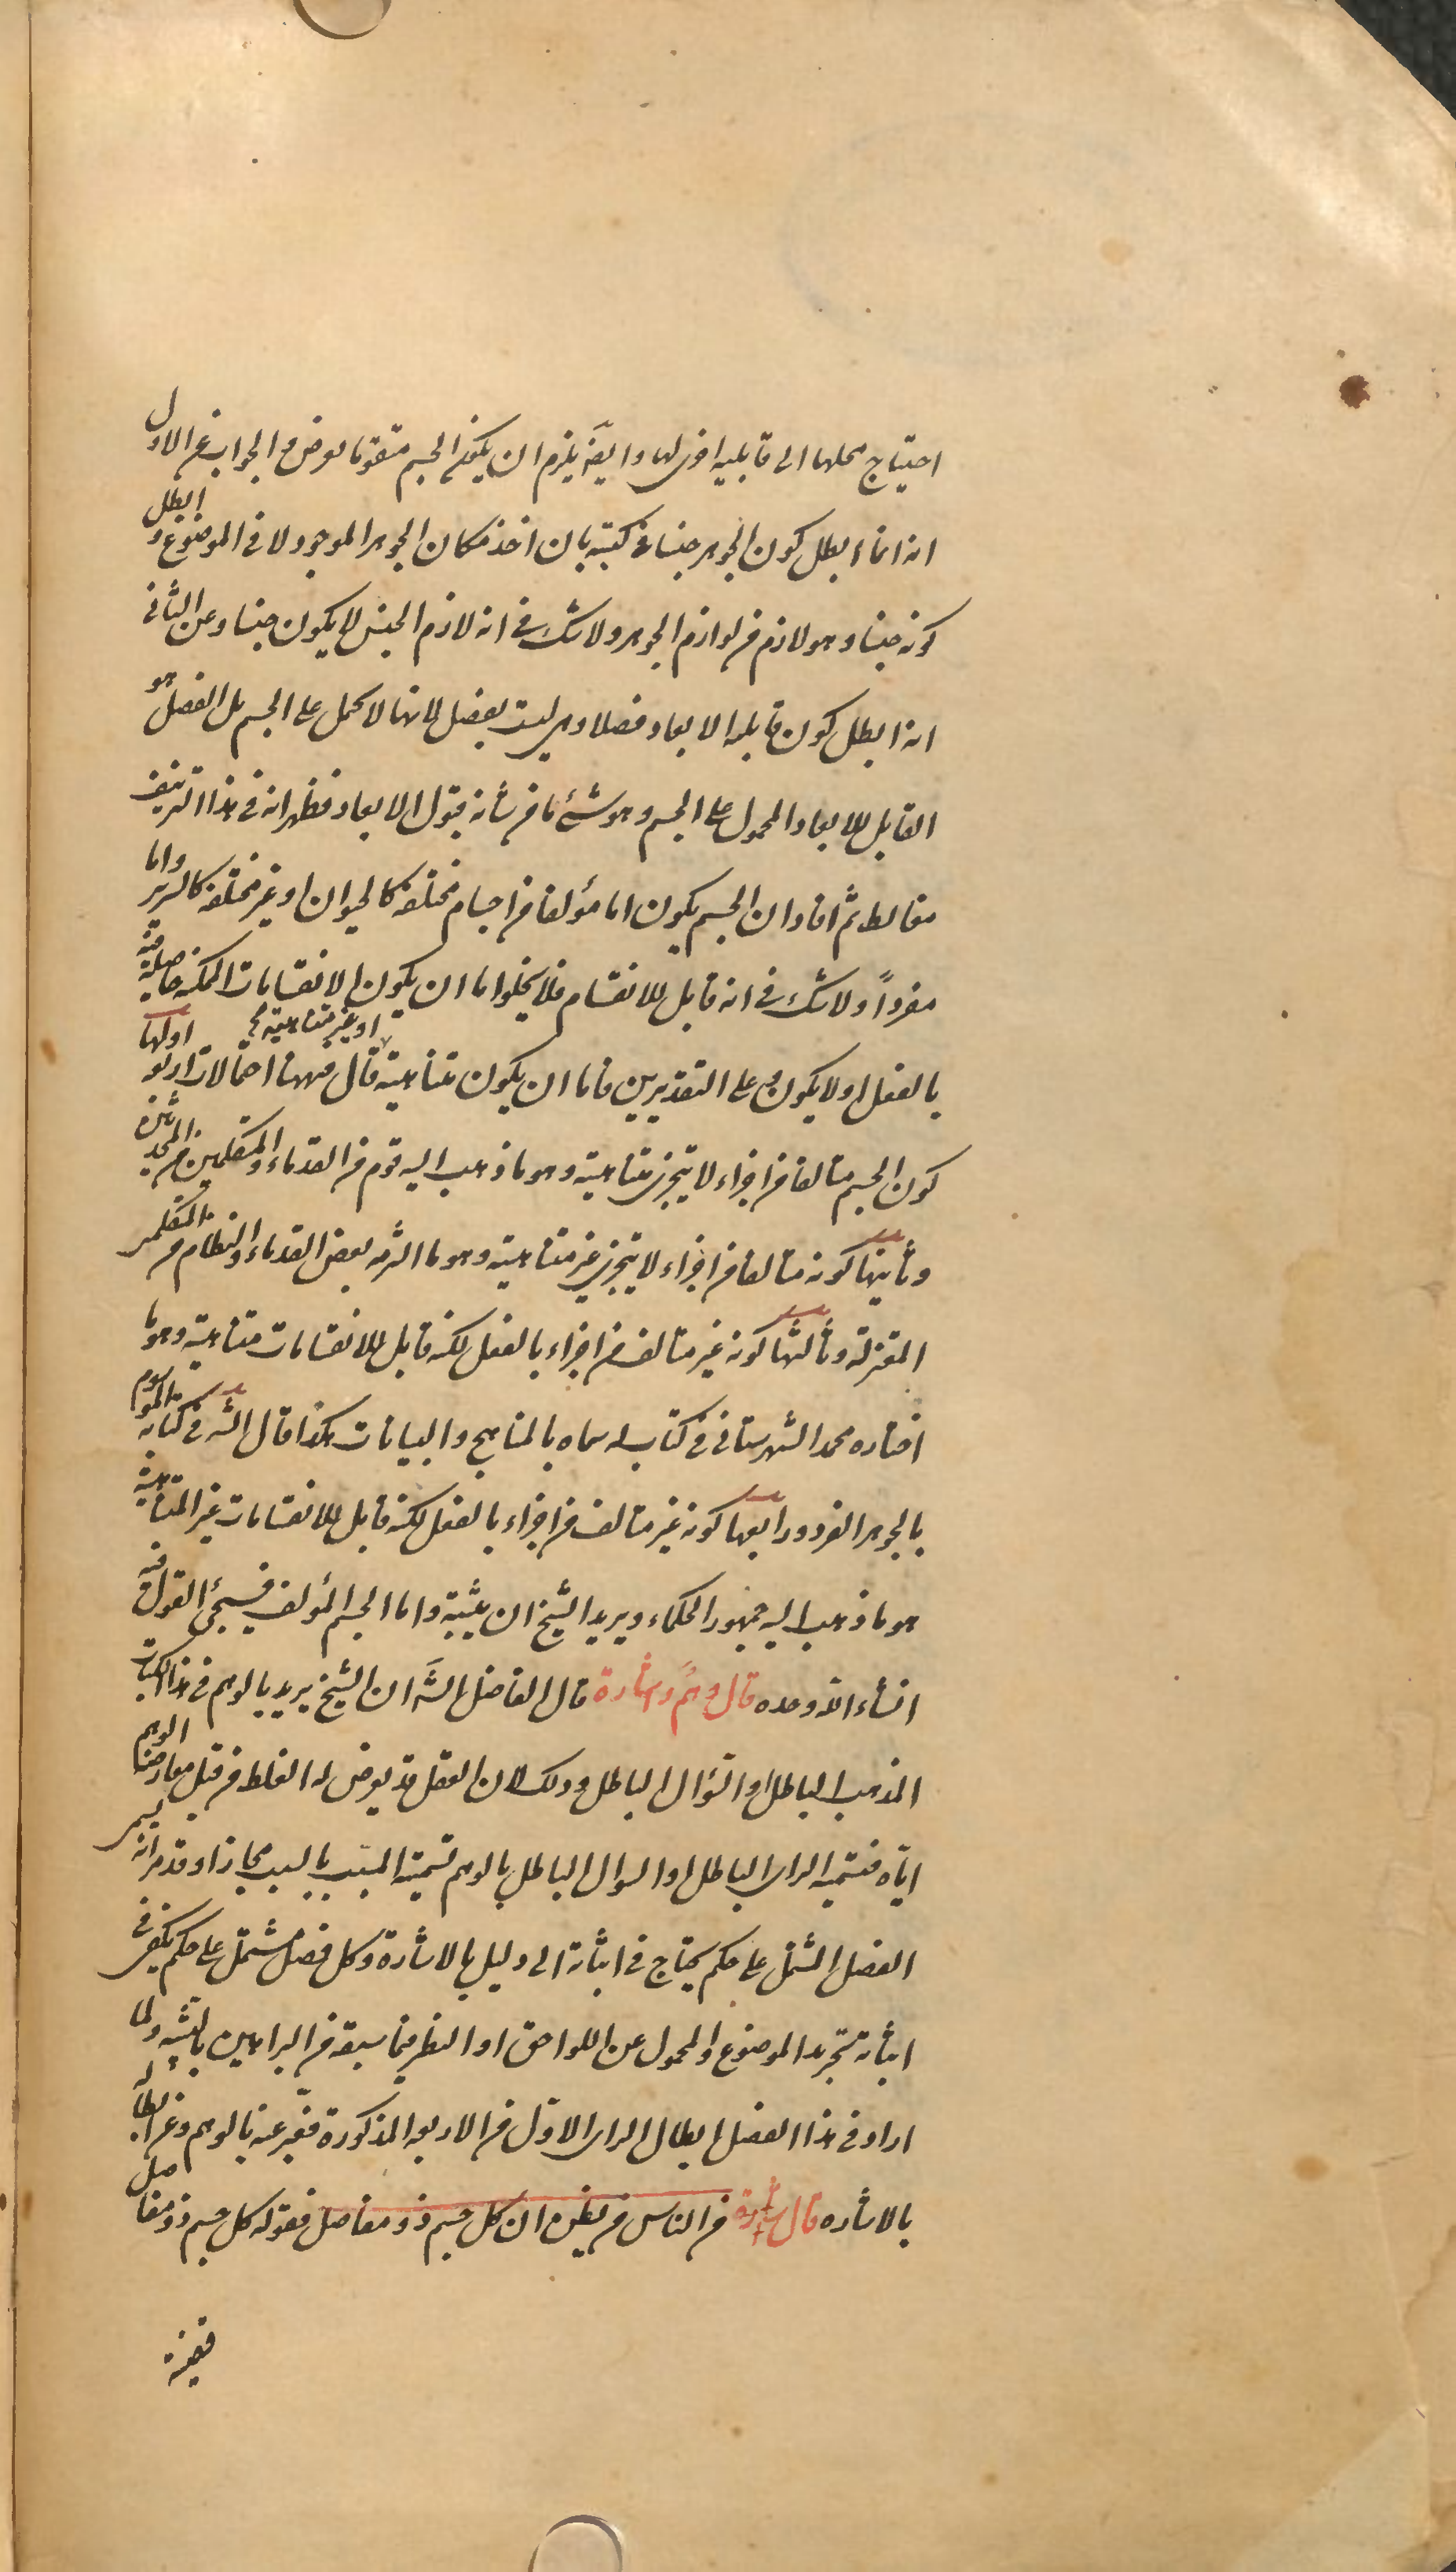 احتياج محلها الى قابليه اخرى لها وايضَ يلزم ان يكون الجسم متقوما بعرض و الجواب عن الاول
انه انما ابطل كون الجوهر جنسا فى كتبه بان اخذ مكان الجوهر الموجود لا فى الموضوع و ابطل
كونه جنسا وهو لازم من لوازم الجوهر ولا شك فى انه لازم الجنس لا يكون جنسا وعن الثانى
انه ابطل كون قابليه الابعاد فصلا وهى ليست بفصل لانها لا تحمل على الجسم بل الفصل هو
القابل للابعاد المحمول على الجسم وهو شئ ما من شأنه قبول الابعاد فظهر انه فى هذا التزييف
مغالط ثم افاد ان الجسم يكون اما مؤلفا من اجسام مختلفه كالحيوان او غير مختلفه كالسرير واما
مفرداً ولا شك فى انه قابل للانقسام فلا يخلوا ما ان يكون الانقسامات الممكنه حاصلة فيه
بالفعل او لا يكون و على التقديرين فاما ان يكون متناهية او غير متناهية قال فههنا احتمالات اربعه اولها
كون الجسم متالفا من اجزاء لا يتجزى متناهية وهو ما ذهب اليه قوم من القدماء و المتكلمين من المحدثين
وثانيها كونه متالفا من اجزاء لا يتجزى غير متناهية وهو ما التزمه بعض القدماء و النظام من المتكلمى
المعتزلة وثالثها كونه غير متالف من اجزاء بالفعل لكنه قابل للانقسامات متناهية وهو ما
اختاره محمد الشهرستانى فى كتاب له سماه بالمناهج و البيانات هكذا قال الشَ فى كتابه الموسوم
بالجوهر الفرد ورابعها كونه غير متالف من اجزاء بالفعل لكنه قابل للانقسامات غير المتناهية
هو ما ذهب اليه جمهور الحكماء ويريد الشيخ ان يثبته واما الجسم المؤلف فسيجئ القول فيه
انشاء الله وحده قال وهمٌ واشارة قال الفاضل الشَ ان الشيخ يريد بالوهم فى هذا الكتاب
المذهب الباطل او السؤال الباطل وذلك لان العقل قد يعرض له الغلط من قبل معارضة الوهم
اياه فتسمية الراى الباطل او السوال الباطل بالوهم تسمية المسبب بالسبب مجازا وقد مر انه يسمى
الفصل المشتمل على حكم يحتاج فى اثباته الى دليل بالاشارة وكل فصل مشتمل على حكم يكفى فى
اثباته تجريد الموضوع والمحمول عن اللواحق او النظر فيما سبقه من البراهين بالتنبيه ولما
اراد فى هذا الفصل ابطال الراى الاول من الاربعه المذكورة فعبر عنه بالوهم وعن ابطاله
بالاشاره قال اشارة من الناس من يظن ان كل جسم ذو مفاصل فقوله كل جسم ذو مفاصل